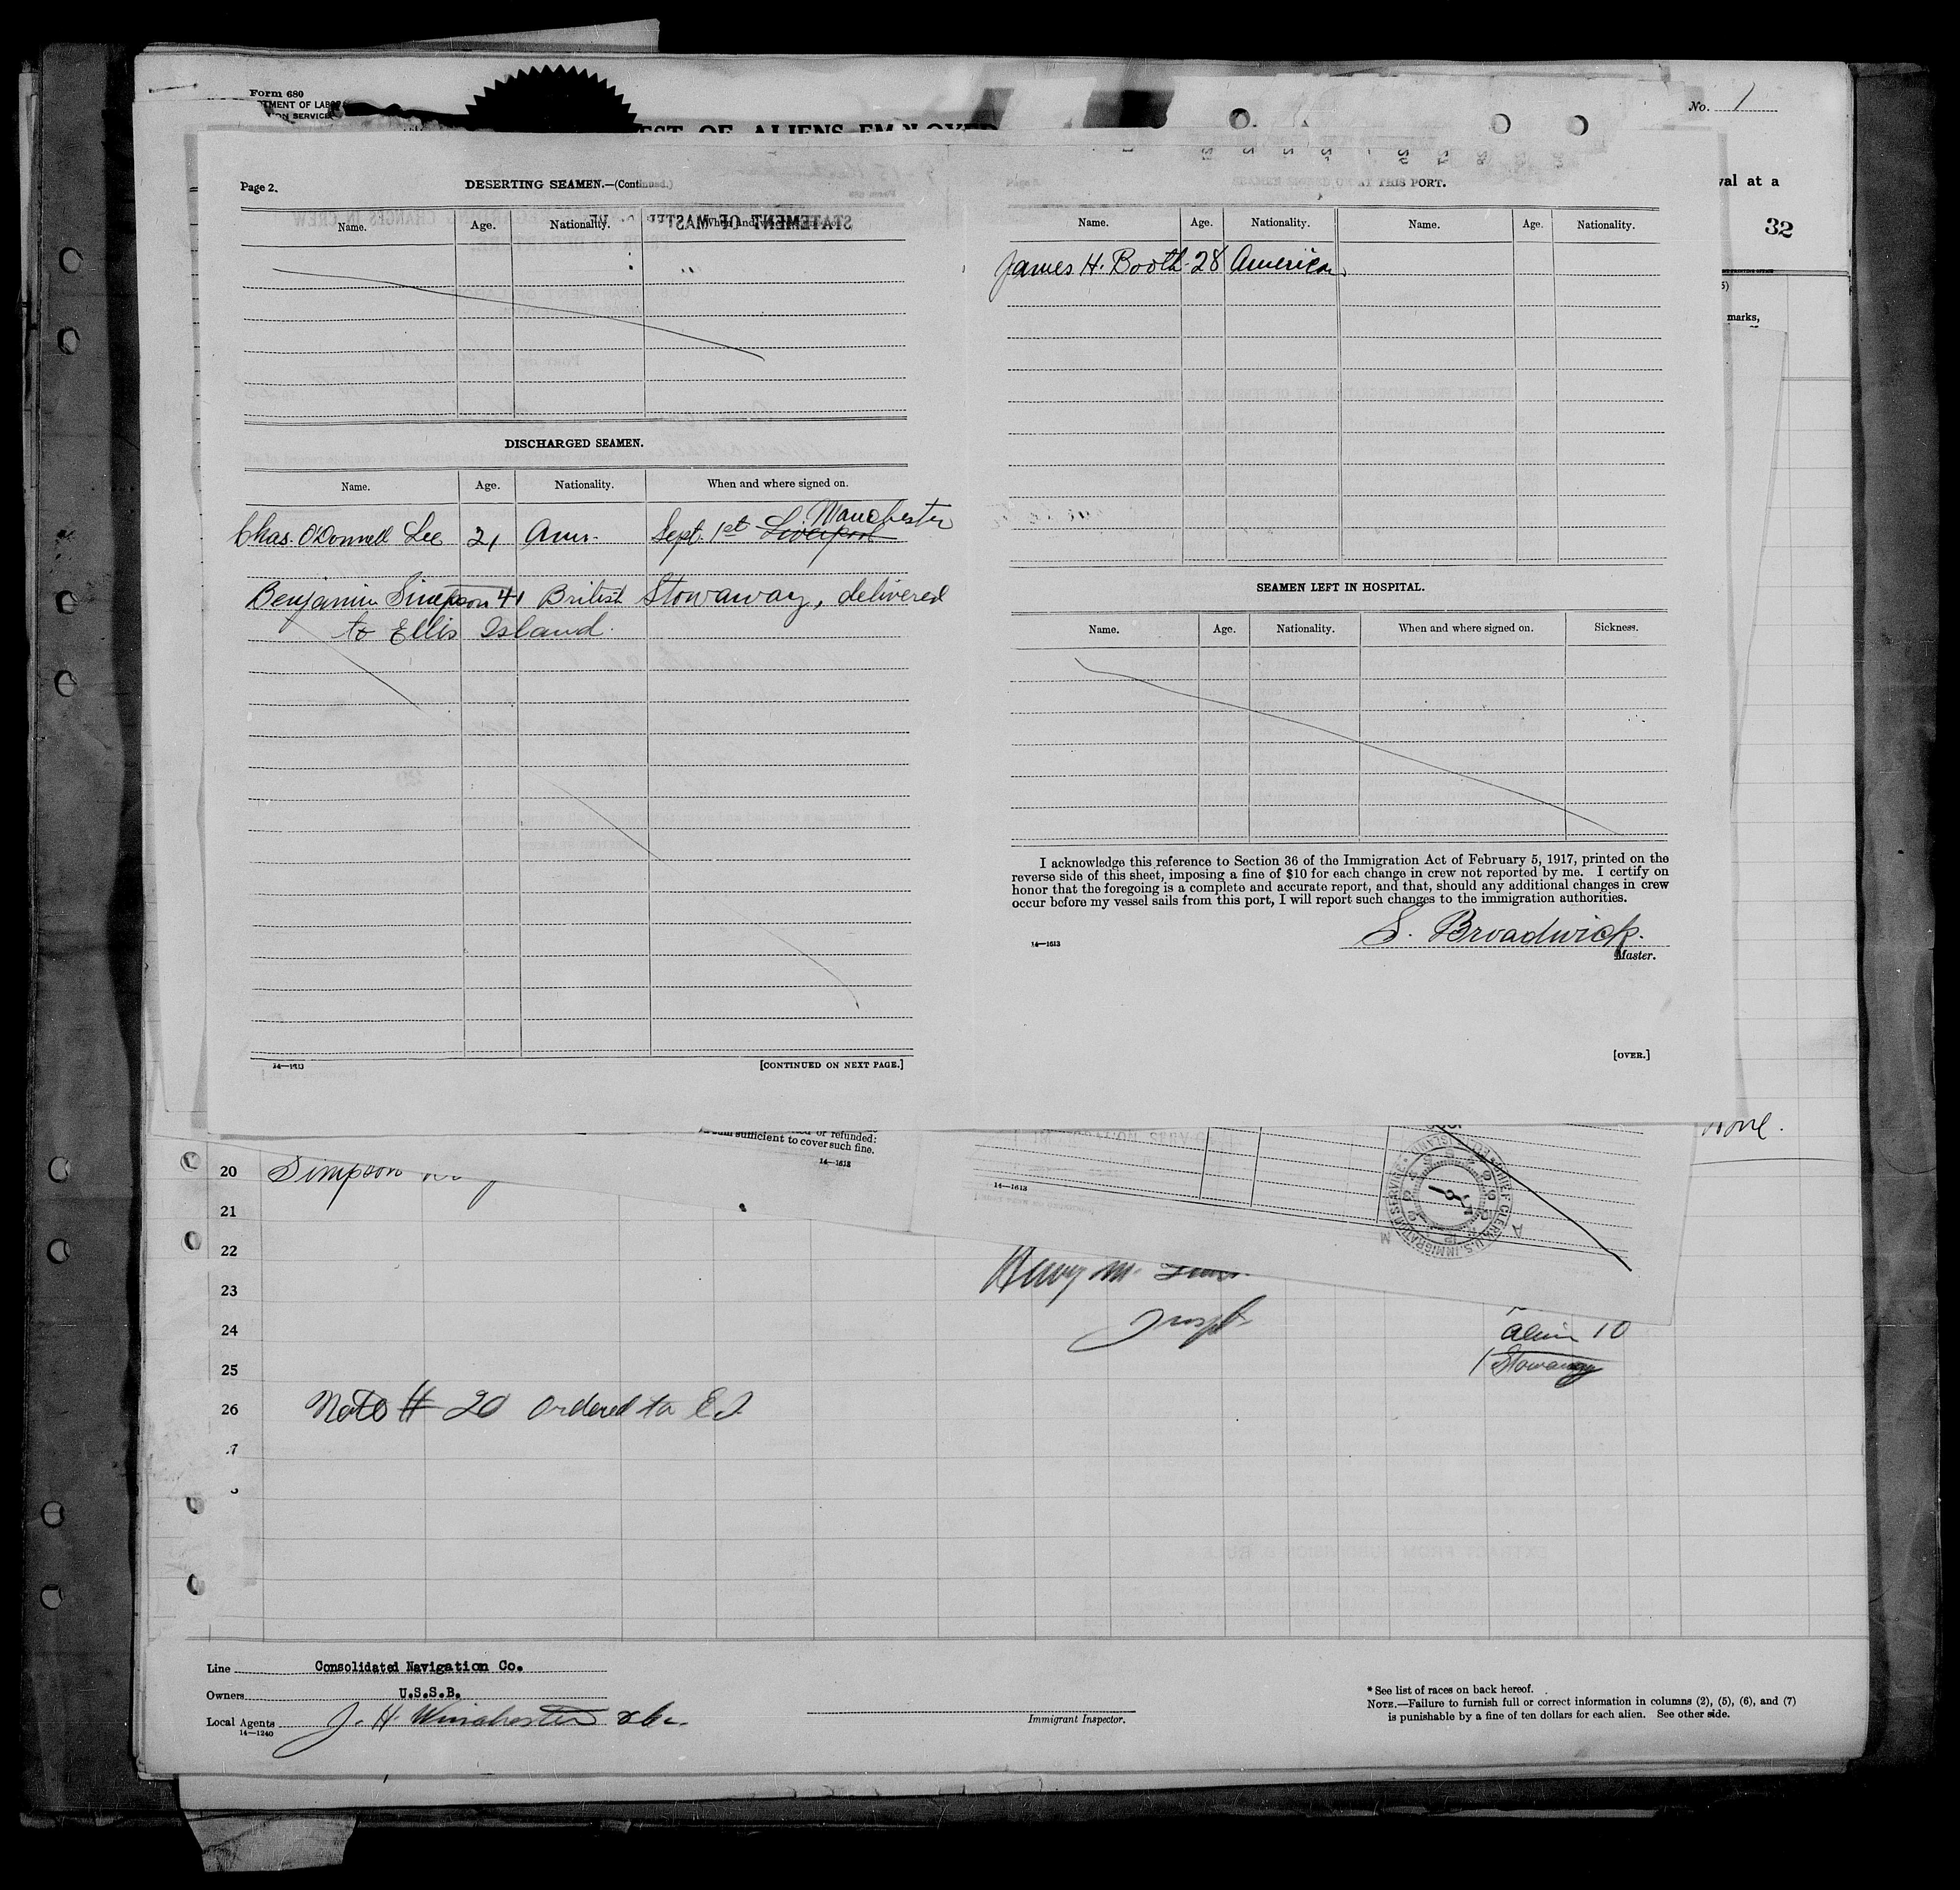 Form 680
TMENT OF LABOR
ON SERVICE
No. 1
Page 2.
DESERTING SEAMEN.—(Continued.)
Name. Age. Nationality. When and where signed on.
DISCHARGED SEAMEN.
Name. Age. Nationality. When and where signed on.
Chas. O'Donnell Lee 21 Am. Sept. 1st Liverpool Manchester
Benjamin Simpson 41 British Stowaway, delivered
to Ellis Island.
14—1613
[CONTINUED ON NEXT PAGE.]
SEAMEN SIGNED ON AT THIS PORT.
Name. Age. Nationality. Name. Age. Nationality.
James H. Booth 28 American
SEAMEN LEFT IN HOSPITAL.
Name. Age. Nationality. When and where signed on. Sickness.
I acknowledge this reference to Section 36 of the Immigration Act of February 5, 1917, printed on the
reverse side of this sheet, imposing a fine of $10 for each change in crew not reported by me. I certify on
honor that the foregoing is a complete and accurate report, and that, should any additional changes in crew
occur before my vessel sails from this port, I will report such changes to the immigration authorities.
14—1613
S. Broadwick.
Master.
[OVER.]
val at a
32
marks,
None.
or refunded:
sum sufficient to cover such fine.
14—1613
14—1613
20 Simpson
21
22
23
24
25
26 Note # 20 Ordered to E.I.
Henry M.
Insp.
Alien 10
1 Stowaway
Line Consolidated Navigation Co.
Owners U.S.S.B.
Local Agents J. H. Winchester & Co.
14—1240
Immigrant Inspector.
* See list of races on back hereof.
NOTE.—Failure to furnish full or correct information in columns (2), (5), (6), and (7)
is punishable by a fine of ten dollars for each alien. See other side.